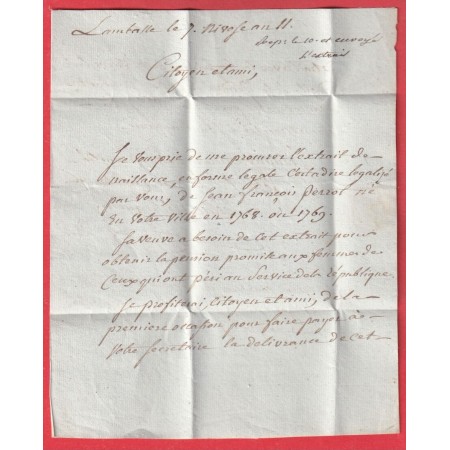 Lamballe le 7. Nivose an 11.
Resp. le 10. et envoyé
l'extrait
Citoyen et ami,
Je vous prie de me procurer l'extrait de
naissance, en forme legale C'est a dire legalisé
par vous, de Jean françois Perrot né
En votre ville en 1768. ou 1769.
Sa veuve a besoin de cet extrait pour
obtenir la pension promise aux femmes de
Ceux qui ont péri au Service de la république.
Je profiterai, Citoyen et ami, de la
premiere occasion pour faire payer à
votre Secretaire la delivrance de cet